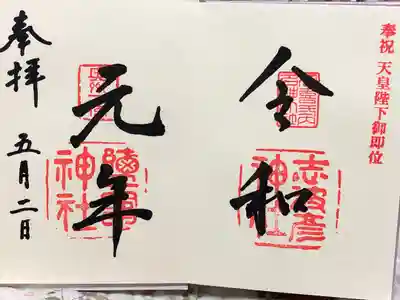 奉祝 天皇陛下御即位
令和
志波彦神社
元年
鹽竈神社
奉拝
五月二日